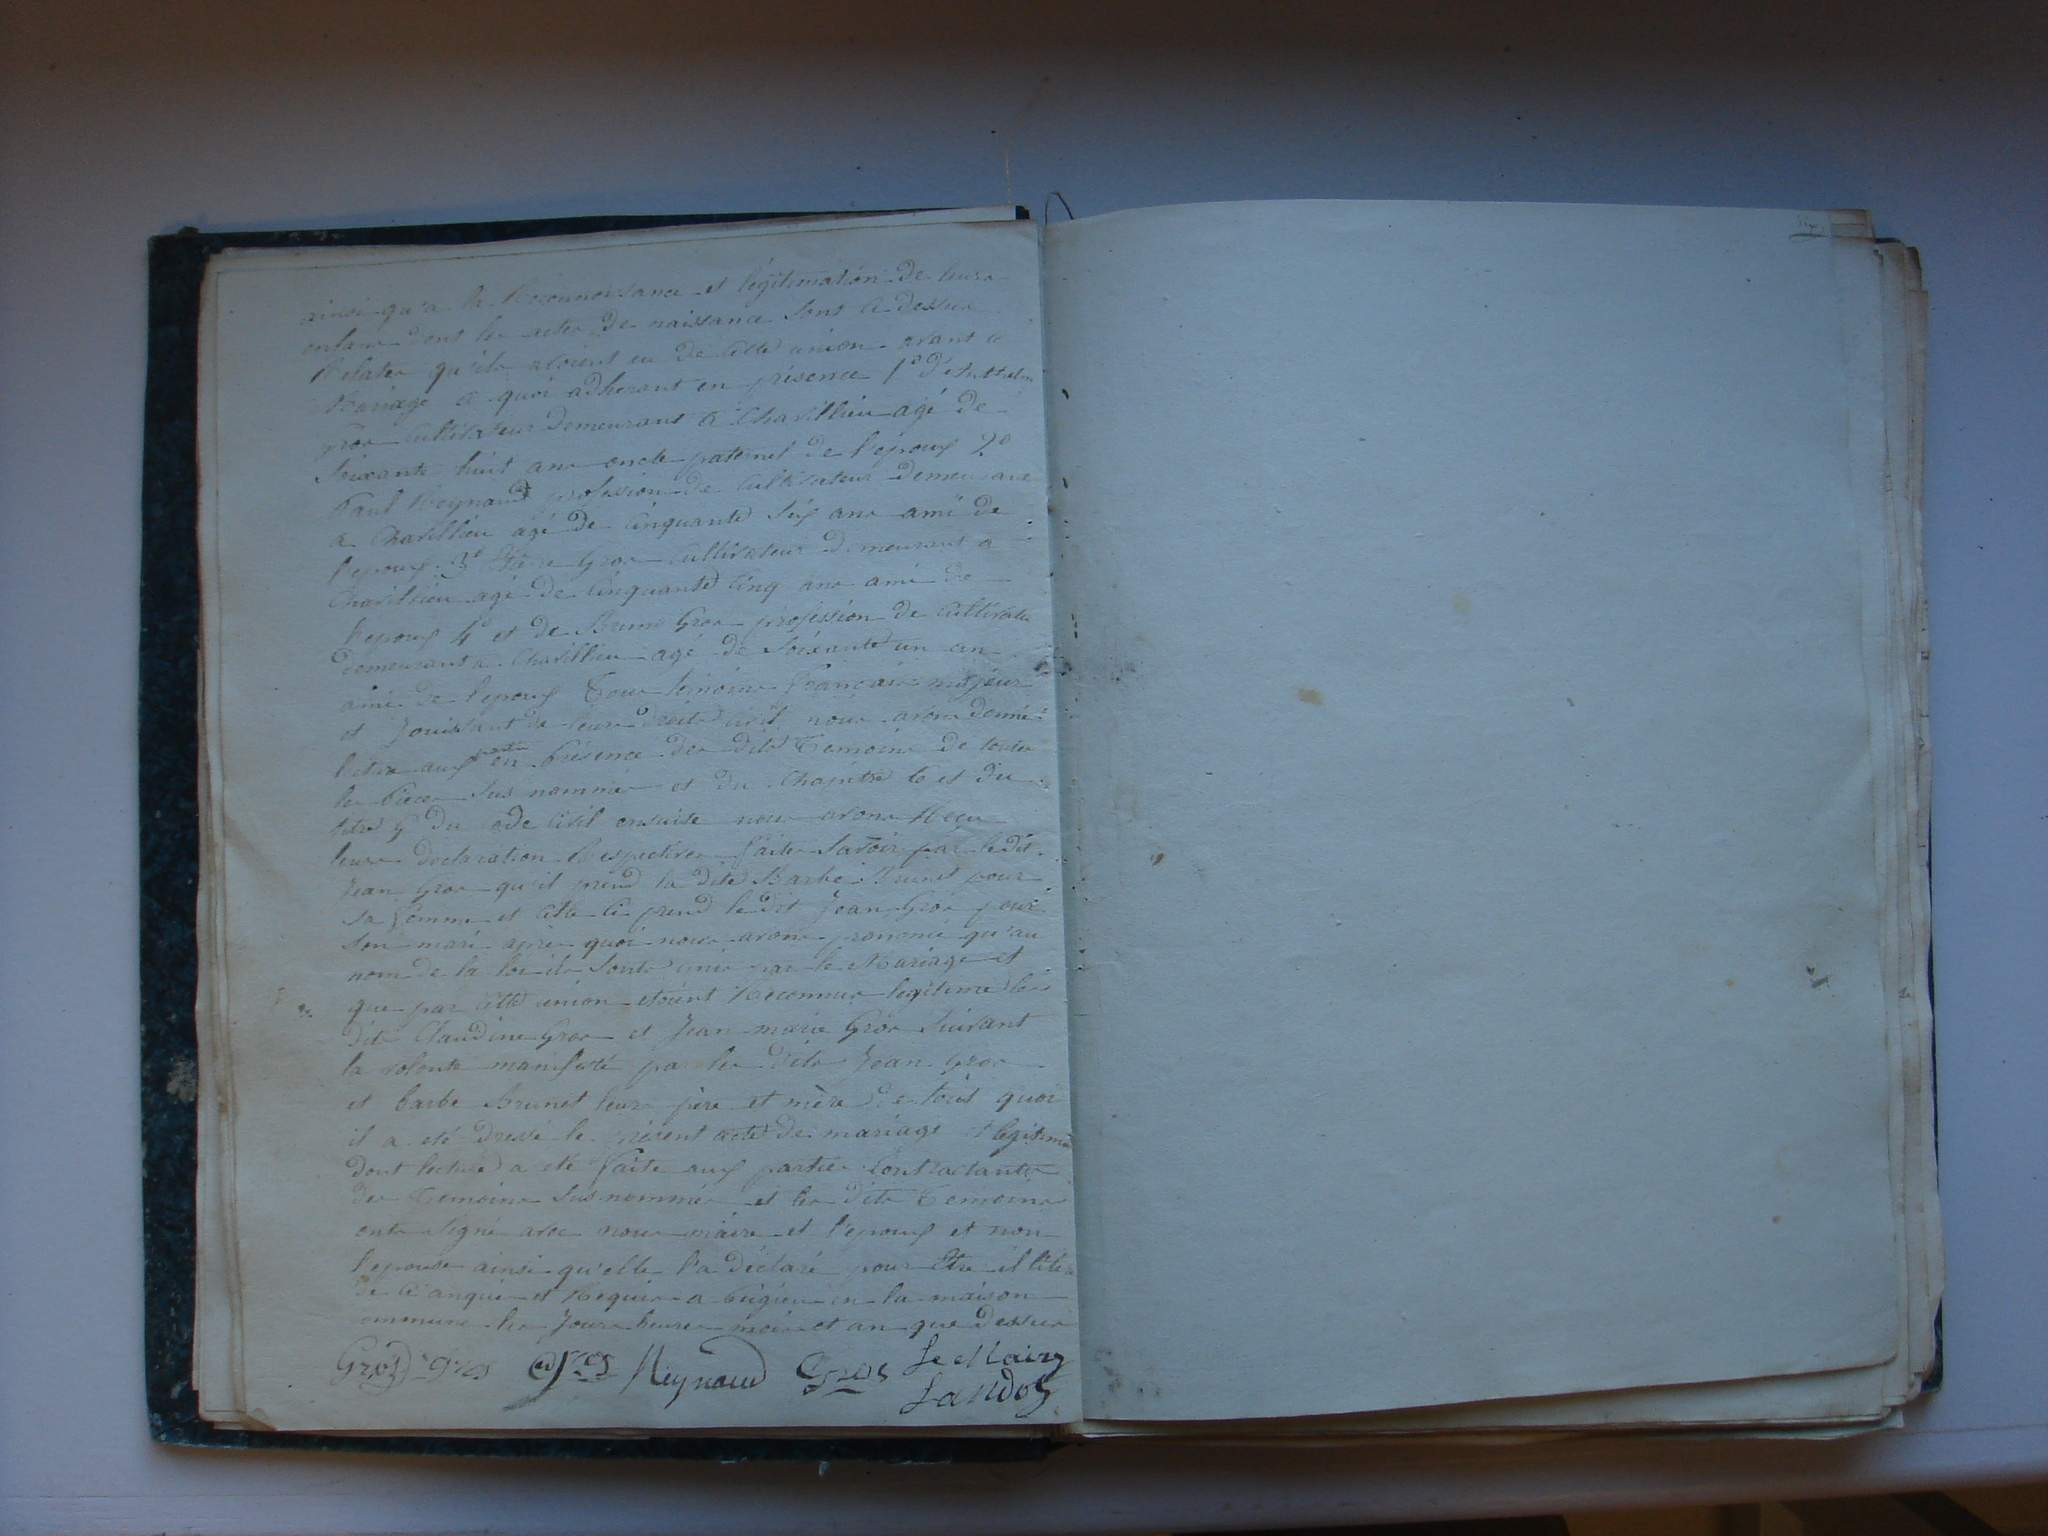 ainsi qu'a la Reconnoissance et légitimation de leurs
enfans dont les actes de naissance sont ci dessus
Relatés qu'ils avoient eu de cette union avant ce
Mariage a quoi adherant en présence 1º d'Anthelme
gros cultivateur demeurant a Charillieu agé de
soixante huit ans oncle paternel de l'epoux 2º
Paul Reynaud profession de cultivateur demeurant
a Charillieu agé de cinquante six ans ami de
l'epoux 3º Gros cultivateur demeurant a
Charillieu agé de cinquante cinq ans ami de
l'epoux 4º et de Bruno Gros profession de cultivateur
demeurant a Charillieu agé de soixante un an
ami de l'epoux Tous temoins français majeurs
et jouissant de leurs droits civil nous avons donné
lecture aux parties en présence des dits Temoins de toutes
les pieces sus nommées et du Chapitre 6 et du
titre 5 du code civil ensuite nous avons Recu
leurs declaration Respectives faites savoir par le dit
Jean Gros qu'il prend la dite Barbe Brunet pour
sa femme et celle ci prend le dit Jean Gros pour
son mari apres quoi nous avons prononcé qu'au
nom de la loi ils sonts unis par le Mariage et
que par cette union étoient Reconnus legitime les
dits Claudine Gros et Jean marie Gros suivant
la volonté manifesté par les dits Jean Gros
et barbe Brunet leurs père et mère de tout quoi
il a eté dressé le présent acte de mariage et legitima
dont lecture a eté faite aux parties contractantes
des Temoins sus nommés et les dits Temoins
onts signé avec nous maire et l'epoux et non
l'epouse ainsi qu'elle l'a déclaré pour être illitéré
de ce enquis et Requis a en la maison
commune les jour heures mois et an que dessus
Gros gros gros Reynaud Gros Le Maire
Landoz